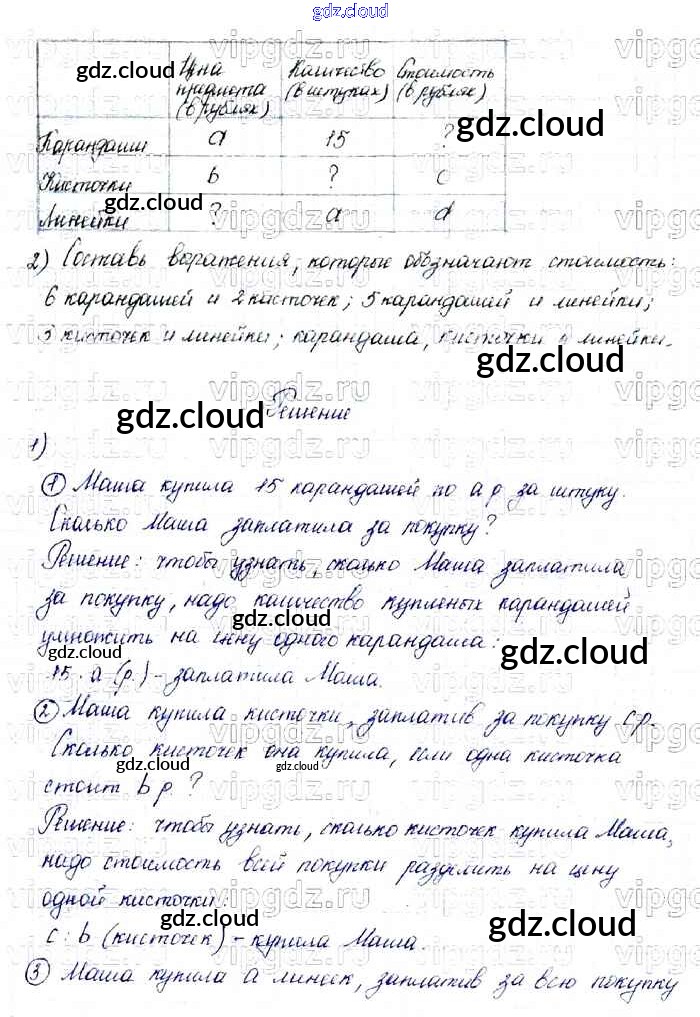 gdz.cloud
Цена предмета (в рублях) Количество (в штуках) Стоимость (в рублях)
Карандаши a 15 ?
Кисточки b ? c
Линейки ? a d
2) Составь выражения, которые обозначают стоимость:
6 карандашей и 2 кисточек; 5 карандашей и линейки;
3 кисточек и линейки; карандаша, кисточки и линейки.
Решение
1)
① Маша купила 15 карандашей по a р. за штуку.
Сколько Маша заплатила за покупку?
Решение: чтобы узнать, сколько Маша заплатила
за покупку, надо количество купленых карандашей
умножить на цену одного карандаша:
15 · a (р.) – заплатила Маша.
② Маша купила кисточки, заплатив за покупку c р.
Сколько кисточек она купила, если одна кисточка
стоит b р.?
Решение: чтобы узнать, сколько кисточек купила Маша,
надо стоимость всей покупки разделить на цену
одной кисточки:
c : b (кисточек) – купила Маша.
③ Маша купила a линеек, заплатив за всю покупку